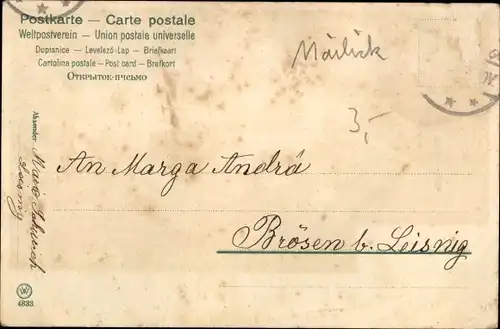 Postkarte — Carte postale
Weltpostverein — Union postale universelle
Dopisnice — Levelező-Lap — Briefkaart
Cartolina postale — Post card — Brefkort
Открытое-письмо
3,-
Absender:
An Marga Andrä
Brösen b. Leisnig
4833.